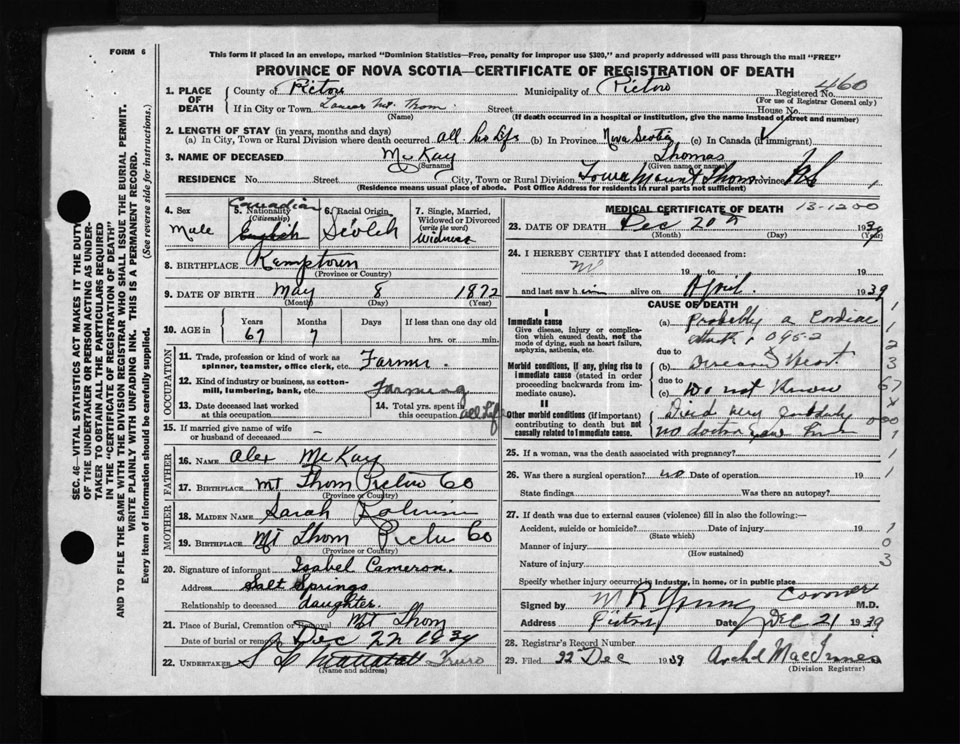 FORM 6
This form if placed in an envelope, marked "Dominion Statistics—Free, penalty for improper use $300," and properly addressed will pass through the mail "FREE"
PROVINCE OF NOVA SCOTIA—CERTIFICATE OF REGISTRATION OF DEATH
1. PLACE OF DEATH County of Pictou Municipality of Pictou Registered No. 460
(For use of Registrar General only)
If in City or Town Mt. Thom Street House No.
(Name) (If death occurred in a hospital or institution, give the name instead of street and number)
2. LENGTH OF STAY (in years, months and days)
(a) In City, Town or Rural Division where death occurred all his life (b) In Province Nova Scotia (c) In Canada (if immigrant)
3. NAME OF DECEASED McKay Thomas
(Surname) (Given name or names)
RESIDENCE No. Street City, Town or Rural Division Mount Thom Province NS 1
(Residence means usual place of abode. Post Office Address for residents in rural parts not sufficient)
4. Sex Male
5. Nationality (Citizenship) Canadian English
6. Racial Origin Scotch
7. Single, Married, Widowed or Divorced (write the word) Widower
8. BIRTHPLACE Kemptown
(Province or Country)
9. DATE OF BIRTH May 8 1872
(Month) (Day) (Year)
10. AGE in Years Months Days If less than one day old
67 7 hrs. or min.
OCCUPATION
11. Trade, profession or kind of work as spinner, teamster, office clerk, etc. Farmer.
12. Kind of industry or business, as cotton-mill, lumbering, bank, etc. Farming
13. Date deceased last worked at this occupation
14. Total yrs. spent in this occupation all life
15. If married give name of wife or husband of deceased –
FATHER
16. NAME Alex McKay
17. BIRTHPLACE Mt Thom Pictou Co
(Province or Country)
MOTHER
18. MAIDEN NAME Sarah
19. BIRTHPLACE Mt Thom Pictou Co
(Province or Country)
20. Signature of informant Isabel Cameron.
Address Salt Springs
Relationship to deceased daughter.
21. Place of Burial, Cremation or Removal Mt Thom
Date of burial or removal Dec 22 1939
22. UNDERTAKER Truro
(Name and address)
MEDICAL CERTIFICATE OF DEATH 13-1200
23. DATE OF DEATH Dec 20th 1939
(Month) (Day) (Year)
24. I HEREBY CERTIFY that I attended deceased from:
19 to 19
and last saw him alive on April. 1939
CAUSE OF DEATH
I
Immediate cause
Give disease, injury or complication which caused death, not the mode of dying, such as heart failure, asphyxia, asthenia, etc.
(a) Probably a Cardiac
attack 095-2
due to
Morbid conditions, if any, giving rise to immediate cause (stated in order proceeding backwards from immediate cause).
(b) Diseased Heart
due to
(c) Do not know
II
Other morbid conditions (if important) contributing to death but not causally related to immediate cause.
Died very suddenly
no doctor saw him
25. If a woman, was the death associated with pregnancy?
26. Was there a surgical operation? no Date of operation 19
State findings Was there an autopsy?
27. If death was due to external causes (violence) fill in also the following:—
Accident, suicide or homicide? Date of injury 19
(State which)
Manner of injury
(How sustained)
Nature of injury
Specify whether injury occurred in industry, in home, or in public place
Signed by M R Young Coroner M.D.
Address Pictou Date Dec 21 1939
28. Registrar's Record Number
29. Filed 22 Dec 1939 Arch'd MacInnes
(Division Registrar)
1
1
2
3
67
X
000
1
1
1
0
3
SEC. 46—VITAL STATISTICS ACT MAKES IT THE DUTY
OF THE UNDERTAKER OR PERSON ACTING AS UNDER-
TAKER TO OBTAIN ALL THE PARTICULARS REQUIRED
IN THE "CERTIFICATE OF REGISTRATION OF DEATH"
AND TO FILE THE SAME WITH THE DIVISION REGISTRAR WHO SHALL ISSUE THE BURIAL PERMIT.
WRITE PLAINLY WITH UNFADING INK. THIS IS A PERMANENT RECORD.
Every item of information should be carefully supplied. (See reverse side for instructions.)